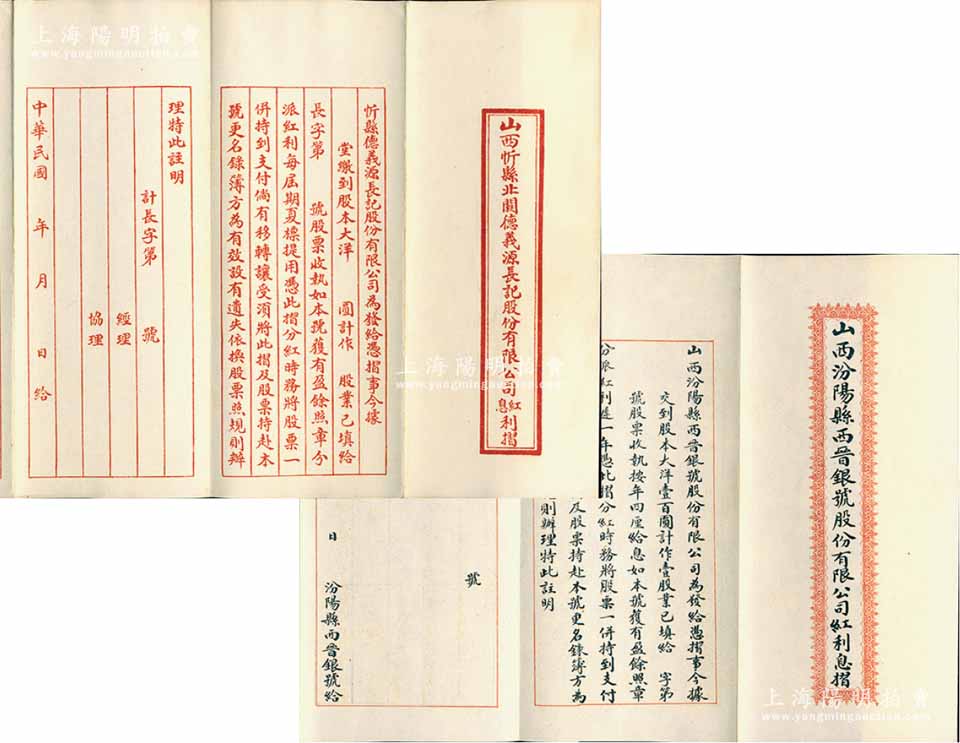 山西忻縣北關德義源長記股份有限公司紅息利摺
忻縣德義源長記股份有限公司為發給憑摺事今據
堂繳到股本大洋 圓計作 股業已填給
長字第 號股票收執如本號獲有盈餘照章分
派紅利每屆期夏標提用憑此摺分紅時務將股票一
併持到支付倘有移轉讓受須將此摺及股票持赴本
號更名錄簿方為有效設有遺失依換股票照規則辦
理特此註明
計長字第 號
經理
協理
中華民國 年 月 日 給
山西汾陽縣西晉銀號股份有限公司紅利息摺
山西汾陽縣西晉銀號股份有限公司為發給憑摺事今據
交到股本大洋壹百圓計作壹股業已填給 字第
號股票收執按年四厘給息如本號獲有盈餘照章
分派紅利逐一年憑此摺分紅時務將股票一併持到支付
及股票持赴本號更名錄簿方為
則辦理特此註明
號
日 汾陽縣西晉銀號給
上海陽明拍賣
www.yangmingauction.com
上海陽明拍賣
www.yangmingauction.com
上海陽明拍賣
www.yangmingauction.com